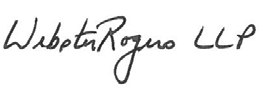 WebsterRogers LLP